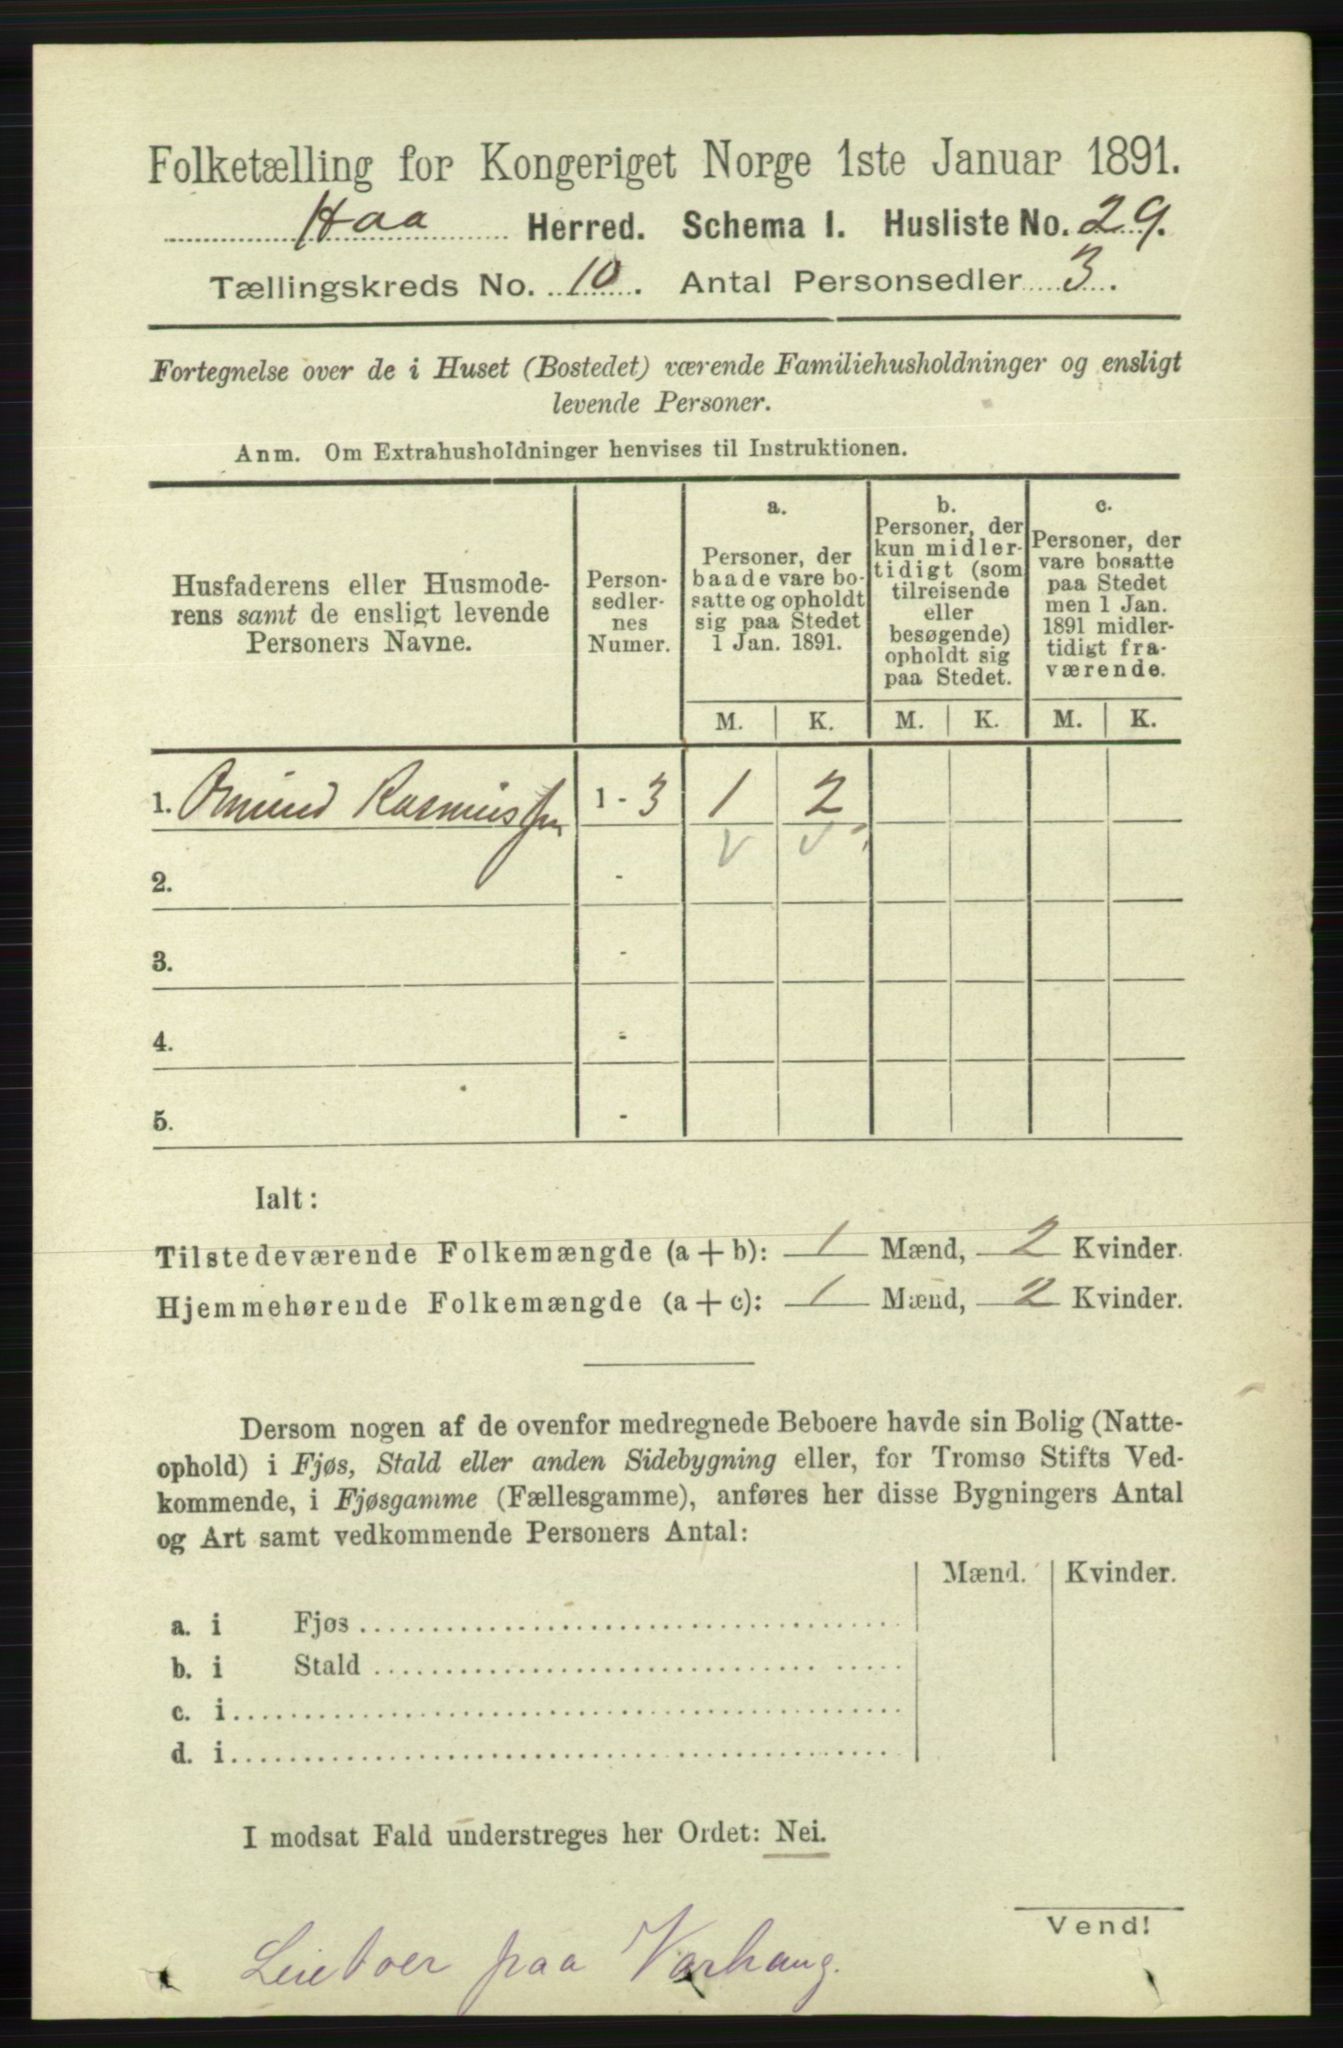 Folketælling for Kongeriget Norge 1ste Januar 1891.
Haa Herred. Schema I. Husliste No. 29.
Tællingskreds No. 10. Antal Personsedler 3.
Fortegnelse over de i Huset (Bostedet) værende Familiehusholdninger og ensligt
levende Personer.
Anm. Om Extrahusholdninger henvises til Instruktionen.
Husfaderens eller Husmode-
rens samt de ensligt levende
Personers Navne.
Person-
sedler-
nes
Numer.
a.
Personer, der
baade vare bo-
satte og opholdt
sig paa Stedet
1 Jan. 1891.
b.
Personer, der
kun midler-
tidigt (som
tilreisende
eller
besøgende)
opholdt sig
paa Stedet.
c.
Personer, der
vare bosatte
paa Stedet
men 1 Jan.
1891 midler-
tidigt fra-
værende.
M. K. M. K. M. K.
1. Omund Rasmussen 1 - 3 1 2
2. -
3. -
4. -
5. -
Ialt:
Tilstedeværende Folkemængde (a + b): 1 Mænd, 2 Kvinder.
Hjemmehørende Folkemængde (a + c): 1 Mænd, 2 Kvinder.
Dersom nogen af de ovenfor medregnede Beboere havde sin Bolig (Natte-
ophold) i Fjøs, Stald eller anden Sidebygning eller, for Tromsø Stifts Ved-
kommende, i Fjøsgamme (Fællesgamme), anføres her disse Bygningers Antal
og Art samt vedkommende Personers Antal:
Mænd. Kvinder.
a. i Fjøs
b. i Stald
c. i
d. i
I modsat Fald understreges her Ordet: Nei.
Vend!
Leieboer paa Varhaug.